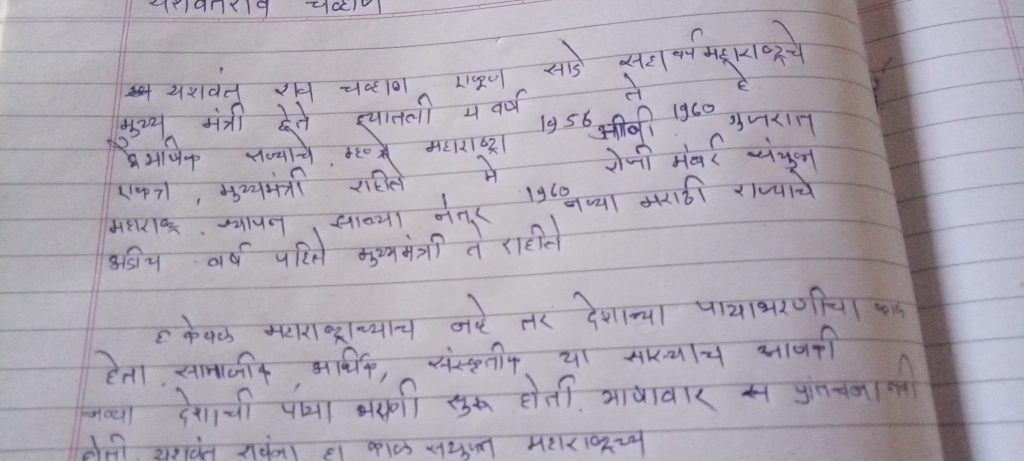 यशवंतराव चव्हाण
यशवंत राव चव्हाण एकूण साडे सहा वर्ष महाराष्ट्रचे
मुख्य मंत्री होते ह्यातली 4 वर्ष ते हे
द्वेभाषिक राज्याचे. म्हणजे महाराष्ट्रा 1956 1960 गुजरात
एकत्र, मुख्यमंत्री राहीले मे रोजी मंबई संयुक्त
महाराष्ट्र. स्थापन झाल्या नंतर 1960 नव्या मराठी राज्याचे
अडीच वर्ष पहिले मुख्यमंत्री ते राहीले
ह केवळ महाराष्ट्राच्याच नव्हे तर देशाच्या पायाभरणीचा काळ
होता. सामाजीक, आर्थिक, संस्कृतीक या साऱ्याच आजकी
नव्या देशाची पाया भरणी सुरू होती. भाषावार प्रांतचना
होती यशवंत रावंना हा काळ संयुक्त महाराष्ट्रच्य